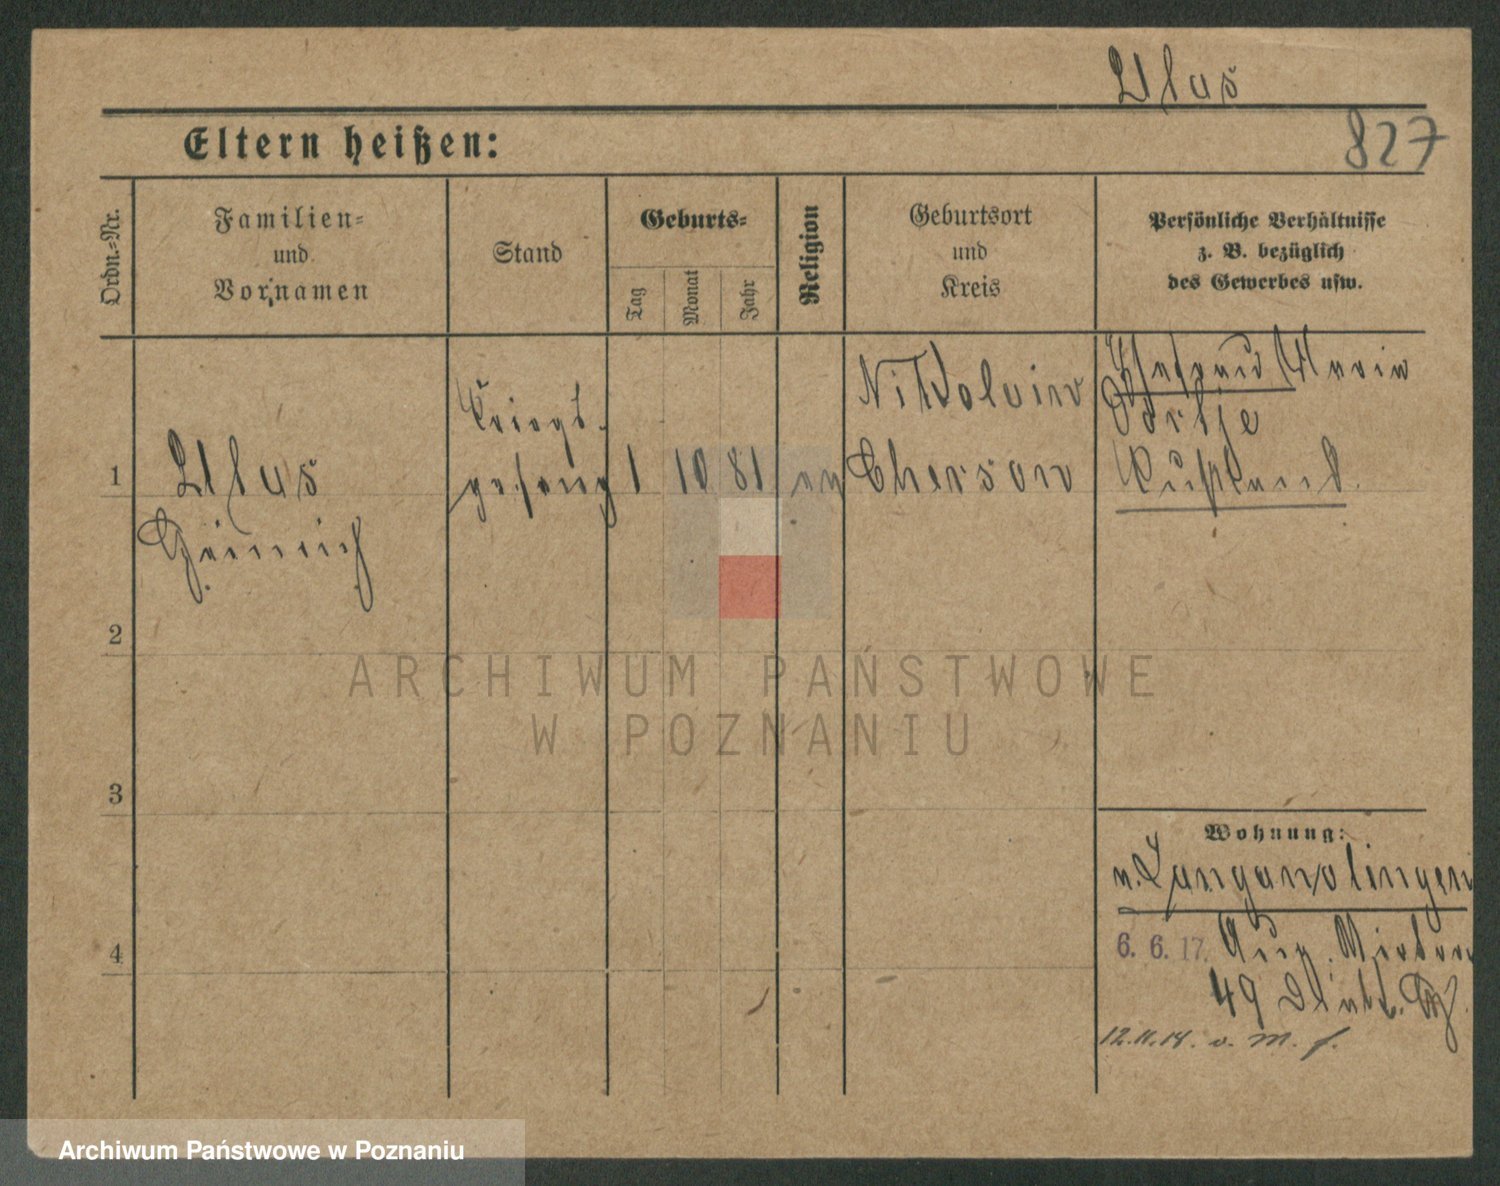 Ulas
827
Eltern heißen:
Ordn.-Nr.
Familien-
und
Vornamen
Stand
Geburts-
Tag
Monat
Jahr
Religion
Geburtsort
und
Kreis
Persönliche Verhältnisse
z. B. bezüglich
des Gewerbes usw.
1
Ulas
Heinrich
Kriegs-
gefang
1 10 81
Nikkolaiw
Cherson
Ehefrau Maria
Rußland.
2
3
4
Wohnung:
n. Langenolingen
6. 6. 17.
49
12.11.18. v. M. f.
ARCHIWUM PAŃSTWOWE
W POZNANIU
Archiwum Państwowe w Poznaniu